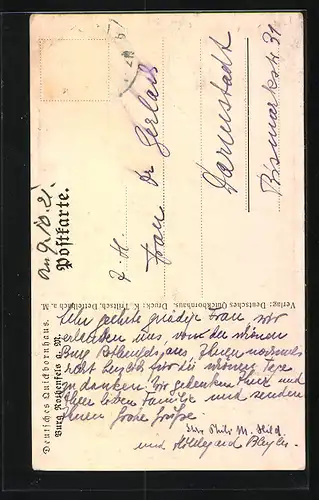 Deutsches Quickbornhaus.
Burg Rothenfels a. M.
Verlag: Deutsches Quickbornhaus. Druck: K. Triltsch, Dettelbach a. M.
Postkarte.
Frau Dr Gerlach
Darmstadt
Bismarkstr 31
Sehr geehrte gnädige Frau wir
erlauben uns, von der schönen
Burg Rothenfels aus, Ihnen nochmals
recht herzlich für die schönen Tage
zu danken. Wir gedenken Ihrer und
Ihrer lieben Familie und senden
Ihnen frohe Grüße.
Ihr Phil. M.
und Hildegard